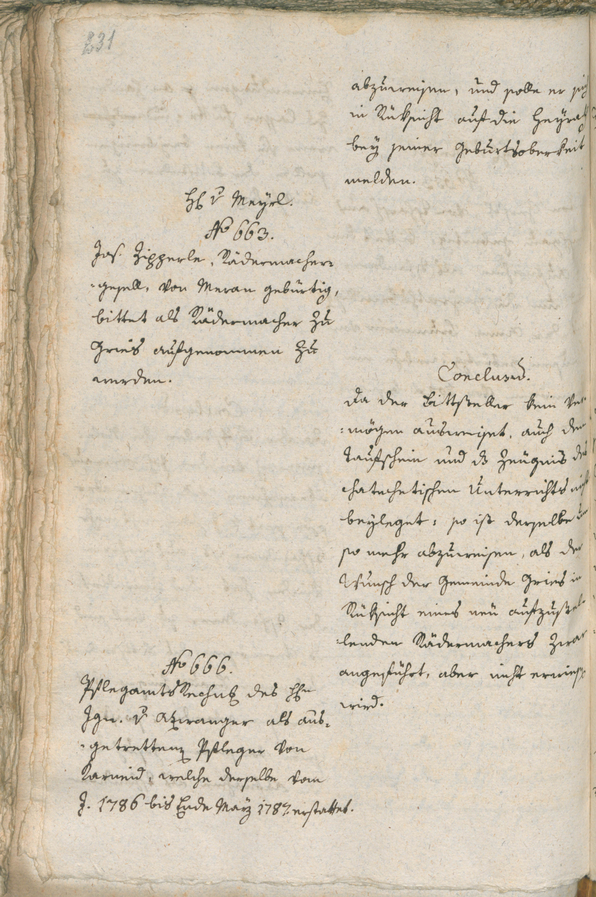 231
abzuweisen, und solle er sich
in Rüksicht auf die Heyrath
bey seiner Geburtsobrigkeit
melden.
H: v Meyrl.
No 663.
Jos. Zipperle, Rädermacher-
-gesell, von Meran gebürtig,
bittet als Rädermacher zu
Gries aufgenommen zu
werden.
Conclusũ.
Da der Bittsteller kein Ver-
-mögen ausweiset, auch den
Taufschein und das Zeugnis des
chatechetischen Unterrichts nicht
beyleget: so ist derselbe um
so mehr abzuweisen, als der
Wunsch der Gemeinde Gries in
Rüksicht eines neu aufzustel-
-lenden Rädermachers zwar
angeführt, aber nicht erwiesen
wird.
No 666.
Pflegamts Rechnũg des H:
Ign. v Atzwanger als aus-
-getrettenen Pfleger von
Karneid, welche derselbe vom
J. 1786 bis Ende März 1787 erstattet.